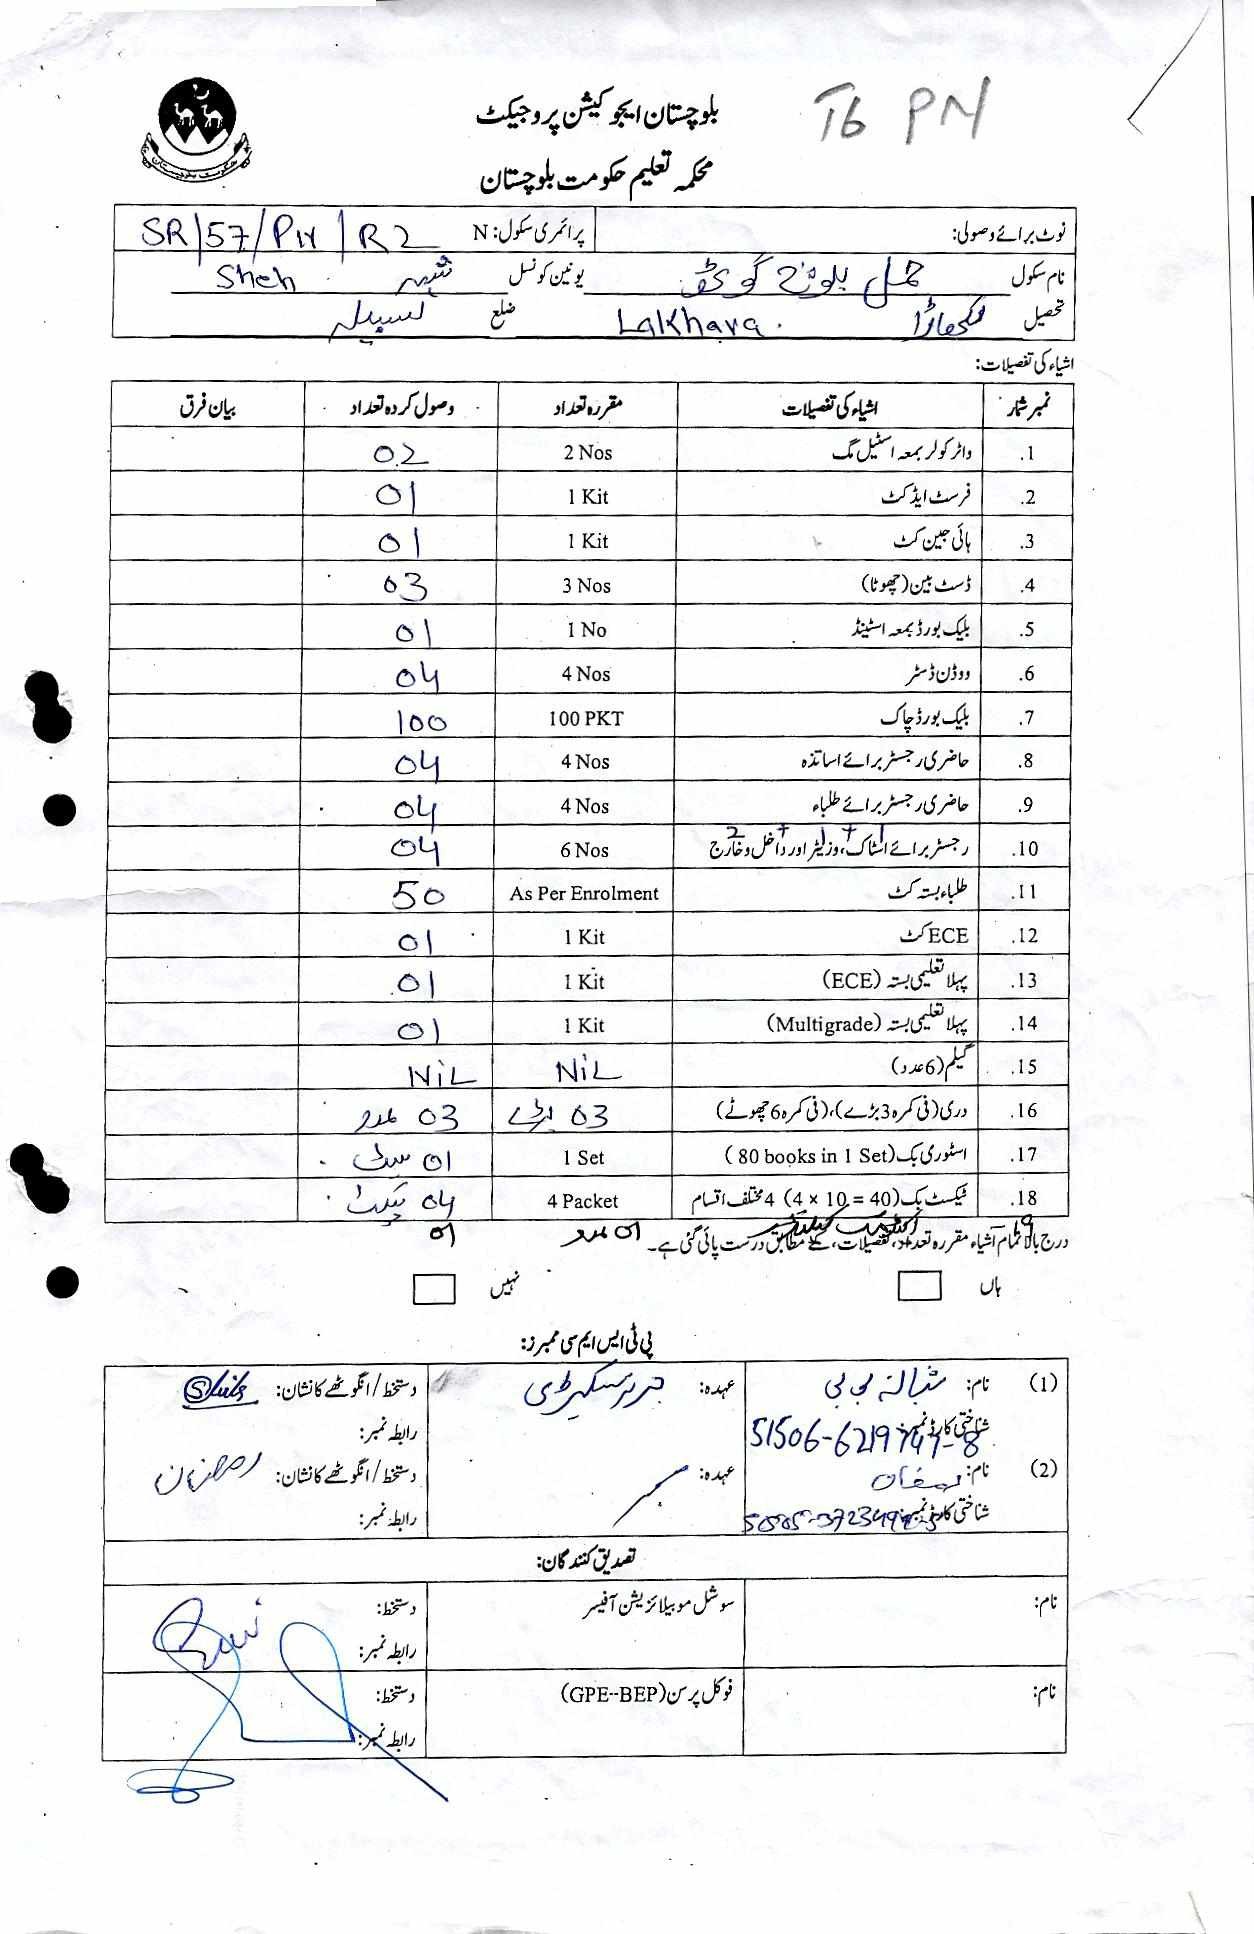 T6 PN
بلوچستان ایجوکیشن پروجیکٹ
محکمہ تعلیم حکومت بلوچستان
نوٹ برائے وصولی: پرائمری سکول: N SR/57/PN/R2
نام سکول حمل بلوچ گوٹھ یونین کونسل شیہ Sheh
تحصیل لاکھاڑا Lakhara. ضلع لسبیلہ
اشیاء کی تفصیلات:
نمبر شمار اشیاء کی تفصیلات مقررہ تعداد وصول کردہ تعداد بیان فرق
1. واٹر کولر بمعہ اسٹیل مگ 2 Nos 02
2. فرسٹ ایڈ کٹ 1 Kit 01
3. ہائی جین کٹ 1 Kit 01
4. ڈسٹ بین (چھوٹا) 3 Nos 03
5. بلیک بورڈ بمعہ اسٹینڈ 1 No 01
6. ووڈن ڈسٹر 4 Nos 04
7. بلیک بورڈ چاک 100 PKT 100
8. حاضری رجسٹر برائے اساتذہ 4 Nos 04
9. حاضری رجسٹر برائے طلباء 4 Nos 04
10. رجسٹر برائے اسٹاک، وزیٹر اور داخل و خارج 6 Nos 04
11. طلباء بستہ کٹ As Per Enrolment 50
12. ECE کٹ 1 Kit 01
13. پہلا تعلیمی بستہ (ECE) 1 Kit 01
14. پہلا تعلیمی بستہ (Multigrade) 1 Kit 01
15. گیلم (6 عدد) NiL NiL
16. دری (فی کمرہ 3 بڑے)، (فی کمرہ 6 چھوٹے) 03 بڑے 03 عدد
17. اسٹوری بک (80 books in 1 Set) 1 Set 01 سیٹ
18. ٹیکسٹ بک (4 × 10 = 40) 4 مختلف اقسام 4 Packet 04 پیکٹ
19 01 عدد 01
درج بالا تمام اشیاء مقررہ تعداد، تفصیلات، کے مطابق درست پائی گئی ہے۔
ہاں نہیں
پی ٹی ایس ایم سی ممبرز:
(1) نام: شبانہ بی بی عہدہ: جنرل سیکریٹری دستخط/انگوٹھے کا نشان:
شناختی کارڈ نمبر: رابطہ نمبر:
(2) نام: عہدہ: ممبر دستخط/انگوٹھے کا نشان: رمضان
شناختی کارڈ نمبر: رابطہ نمبر:
تصدیق کنندگان:
نام: سوشل موبیلائزیشن آفیسر دستخط:
رابطہ نمبر:
نام: فوکل پرسن (GPE--BEP) دستخط:
رابطہ نمبر: